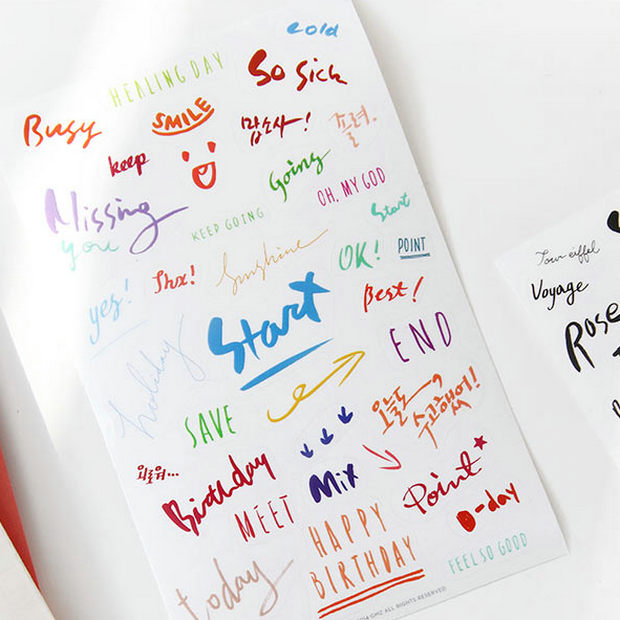 cold
HEALING DAY
So Sick
Busy
SMILE
맙소사!
졸려.
keep
Going
OH, MY GOD
Missing
you
KEEP GOING
Start
Sunshine
OK!
POINT
yes!
Thx!
Best!
Start
END
holiday
SAVE
오늘도
수고했어!
외로워...
Birthday
Mix
Point
MEET
D-day
HAPPY
BIRTHDAY
FEEL SO GOOD
today
ALL RIGHTS RESERVED
Tour eiffel
Voyage
Rose